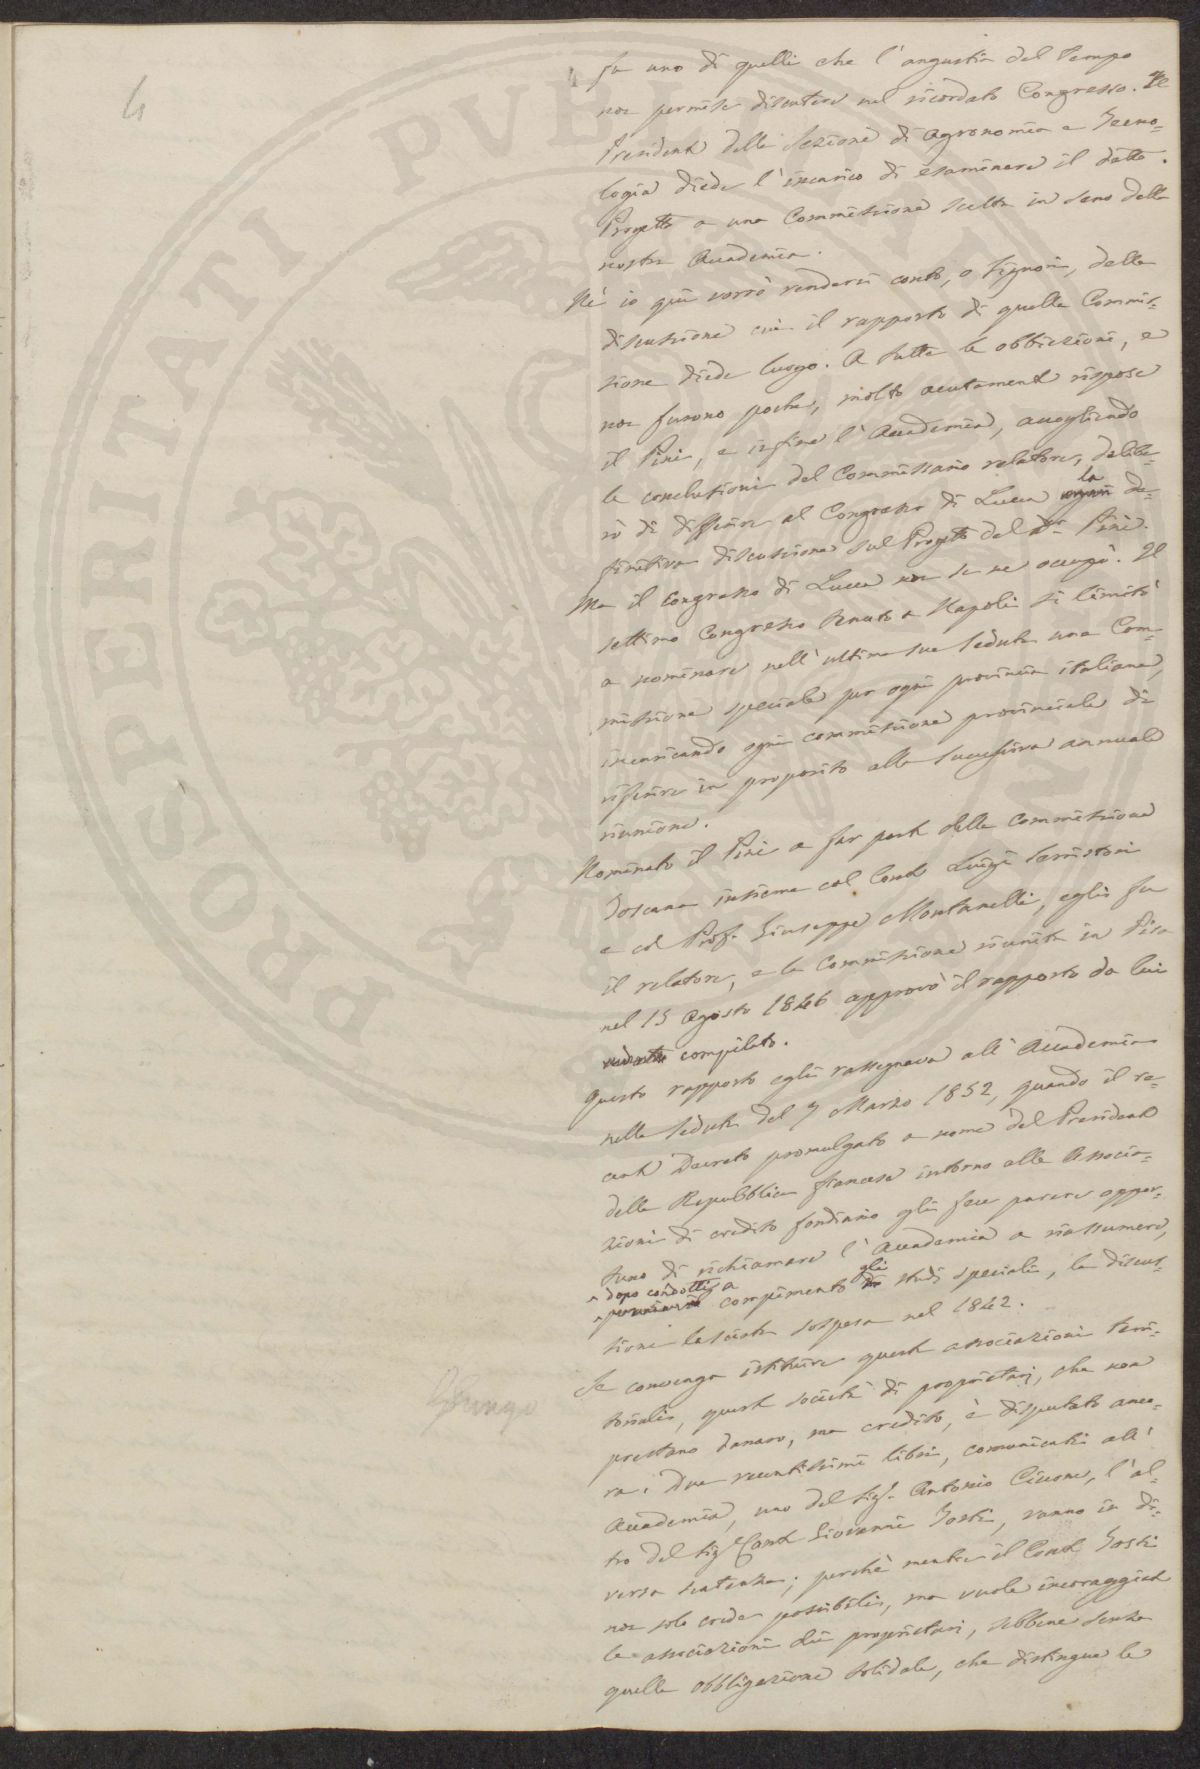 4
fu uno di quelli che l'angustia del tempo
non permise discutere nel ricordato Congresso. Il
Presidente della Sezione di Agronomia e Tecno-
logia diede l'incarico di esaminare il detto
Progetto a una Commissione scelta in seno della
nostra Accademia.
Nè io quì vorrò rendervi conto, o Signori, della
discussione cui il rapporto di quella Commis-
sione diede luogo. A tutte le obbiezioni, e
non furono poche, molto acutamente rispose
il Pini, e infine l'Accademia, accogliendo
le conclusioni del Commissario relatore, delibe-
rò di differire al Congresso di Lucca la de-
finitiva discussione sul Progetto del Dr Pini.
Ma il Congresso di Lucca non se ne occupò. Il
settimo Congresso tenuto a Napoli si limitò
a nominare nell'ultima sua seduta una Com-
missione speciale per ogni provincia italiana,
incaricando ogni commissione provinciale di
riferire in proposito alla successiva annuale
riunione.
Nominato il Pini a far parte della Commissione
Toscana insieme col Conte Luigi Serristori
e col Prof. Giuseppe Montanelli, egli fu
il relatore, e la Commissione riunita in Pisa
nel 15 Agosto 1846 approvò il rapporto da lui
compilato.
Questo rapporto egli rassegnava all'Accademia
nella seduta del 7 Marzo 1852, quando il re-
cente Decreto promulgato a nome del Presidente
della Repubblica francese intorno alle Associa-
zioni di credito fondiario gli fece parere oppor-
tuno di richiamare l'Accademia a riassumere,
dopo condotti a
compimento gli studi speciali, la discus-
sione lasciata sospesa nel 1842.
Se convenga istituire queste associazioni terri-
toriali, queste società di proprietarj, che non
prestano danaro, ma credito, è disputato anco-
ra: Due recentissimi libri, comunicati all'
Accademia, uno del Sig. Antonio Ciccone, l'al-
tro del Sig. Conte Giovanni Gosti, vanno in di-
versa sentenza; perchè mentre il Conte Gosti
non solo crede possibili, ma vuole incoraggiate
le associazioni dei proprietarj, sebbene senza
quella obbligazione solidale, che distingue le